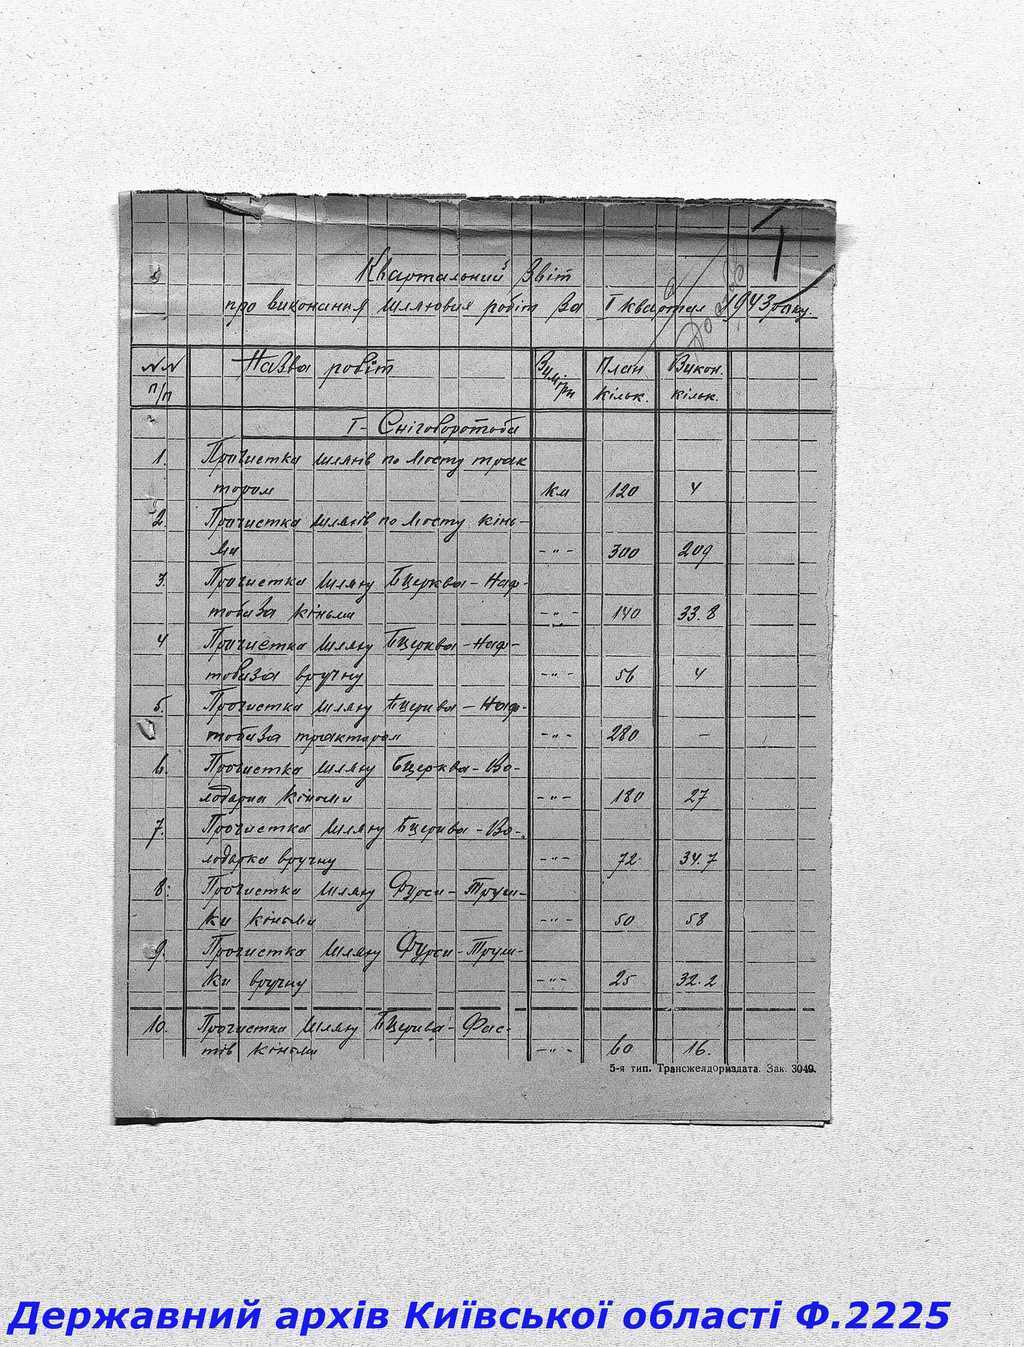 Квартальний Звіт
про виконання шляхових робіт За I квартал 1943 року.
NN п/п Назва робіт Вимірн План кільк. Викон. кільк.
I - Сніговоротьба
1. Прочистка шляхів по місту трак
тором км 120 4
2. Прочистка шляхів по місту кінь-
ми -"- 300 209
3. Прочистка шляху Бцерква - Наф-
тобаза кіньми -"- 140 33.8
4 Прочистка шляху Бцерква - Наф-
тобаза вручну -"- 56 4
5. Прочистка шляху Бцерква - Наф-
тобаза трактором -"- 280 -
6. Прочистка шляху Бцерква - Во-
лодарка кіньми -"- 180 27
7. Прочистка шляху Бцерква - Во-
лодарка вручну -"- 72 34.7
8. Прочистка шляху Фурси - Труш-
ки кіньми -"- 50 58
9. Прочистка шляху Фурси - Труш-
ки вручну -"- 25 32.2
10. Прочистка шляху Бцерква - Фас-
тів кіньми -"- 60 16.
5-я тип. Трансжелдориздата. Зак. 3049.
Державний архів Київської області Ф.2225